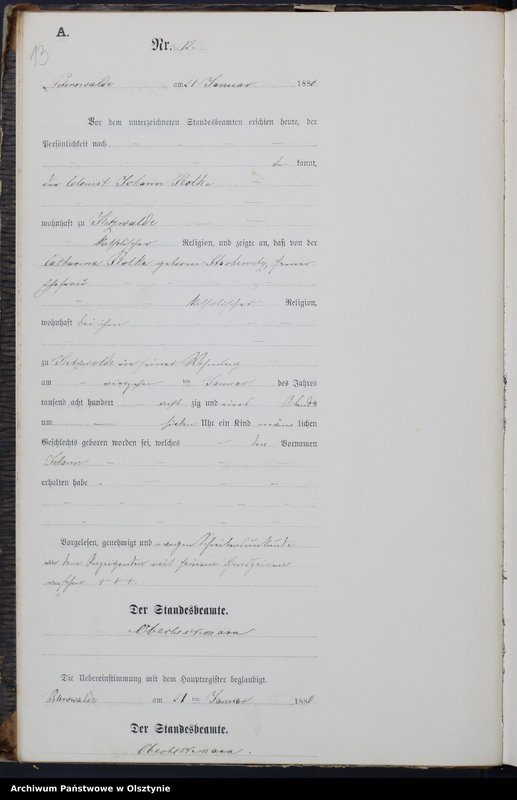 A.
13
Nr. 12.
Peterswalde am 21 Januar 188
Vor dem unterzeichneten Standesbeamten erschien heute, der
Persönlichkeit nach
be kannt,
der Colonist Johann
wohnhaft zu
katholischer Religion, und zeigte an, daß von der
Catharina geborene seiner
Ehefrau
katholischer Religion,
wohnhaft bei ihm
zu in seiner Wohnung
am vierzehn ten Januar des Jahres
tausend acht hundert acht zig und eins Abends
um sieben Uhr ein Kind männ lichen
Geschlechts geboren worden sei, welches den Vornamen
Johann
erhalten habe
Vorgelesen, genehmigt und wegen Schreibensunkunde
von dem Anzeigenden mit seinem Handzeichen
versehen +++
Der Standesbeamte.
Oberbeckmann
Die Uebereinstimmung mit dem Hauptregister beglaubigt.
Peterswalde am 21 ten Januar 188
Der Standesbeamte.
Oberbeckmann.
Archiwum Państwowe w Olsztynie